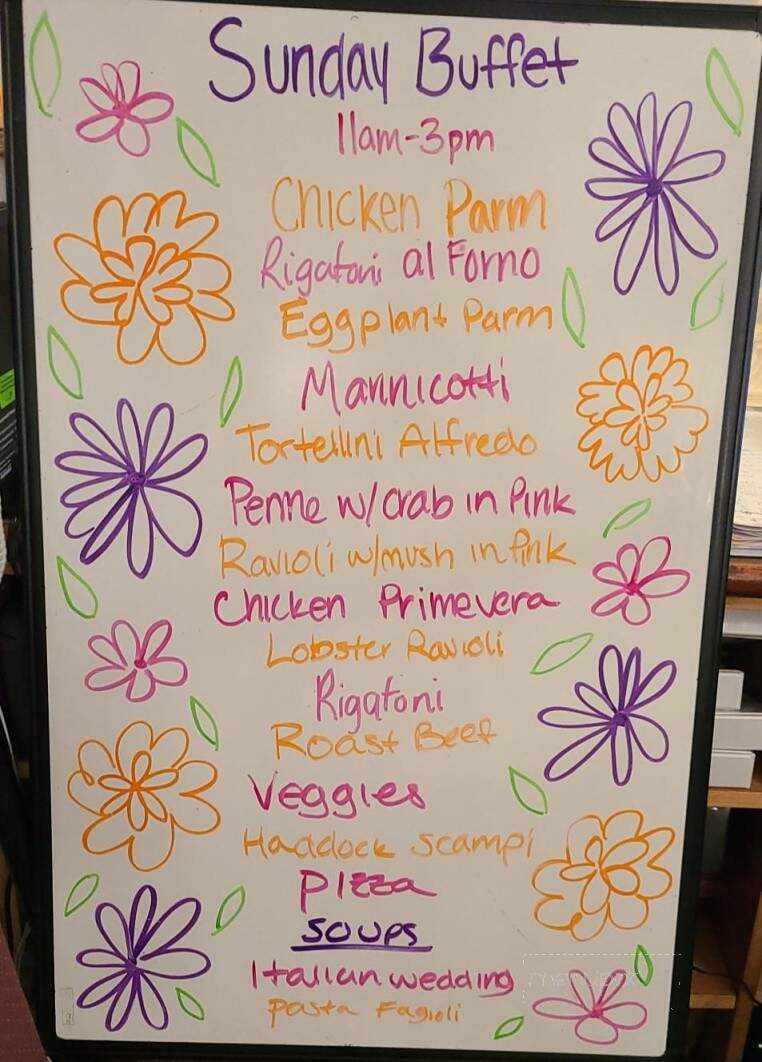 Sunday Buffet
11am-3pm
Chicken Parm
Rigatoni al Forno
Eggplant Parm
Mannicotti
Tortellini Alfredo
Penne w/crab in Pink
Ravioli w/mush in Pink
Chicken Primevera
Lobster Ravioli
Rigatoni
Roast Beef
Veggies
Haddock Scampi
Pizza
SOUPS
Italian wedding
Pasta Fagioli